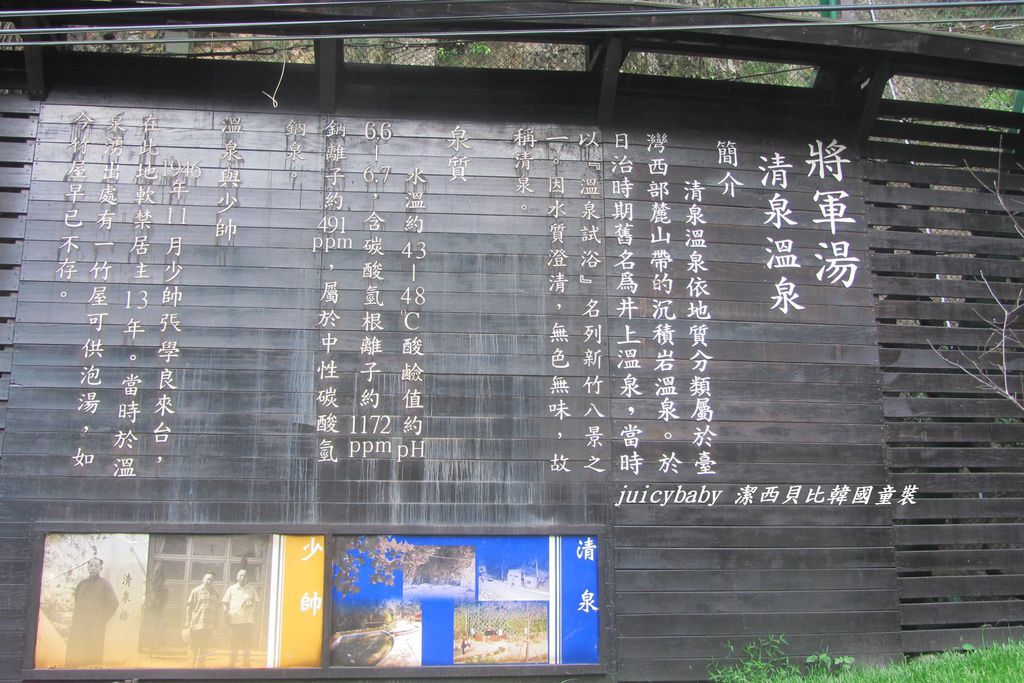 將軍湯
清泉溫泉
簡介
清泉溫泉依地質分類屬於臺
灣西部麓山帶的沉積岩溫泉。於
日治時期舊名為井上溫泉，當時
以『溫泉試浴』名列新竹八景之
一。因水質澄清，無色無味，故
稱清泉。
泉質
水溫約43－48℃酸鹼值約pH
6.6－6.7，含碳酸氫根離子約1172ppm
鈉離子約491ppm，屬於中性碳酸氫
鈉泉。
溫泉與少帥
1946年11月少帥張學良來台，
在此地軟禁居主13年。當時於溫
泉湧出處有一竹屋可供泡湯，如
今竹屋早已不存。
juicybaby 潔西貝比韓國童裝
清泉
少帥
清泉橋